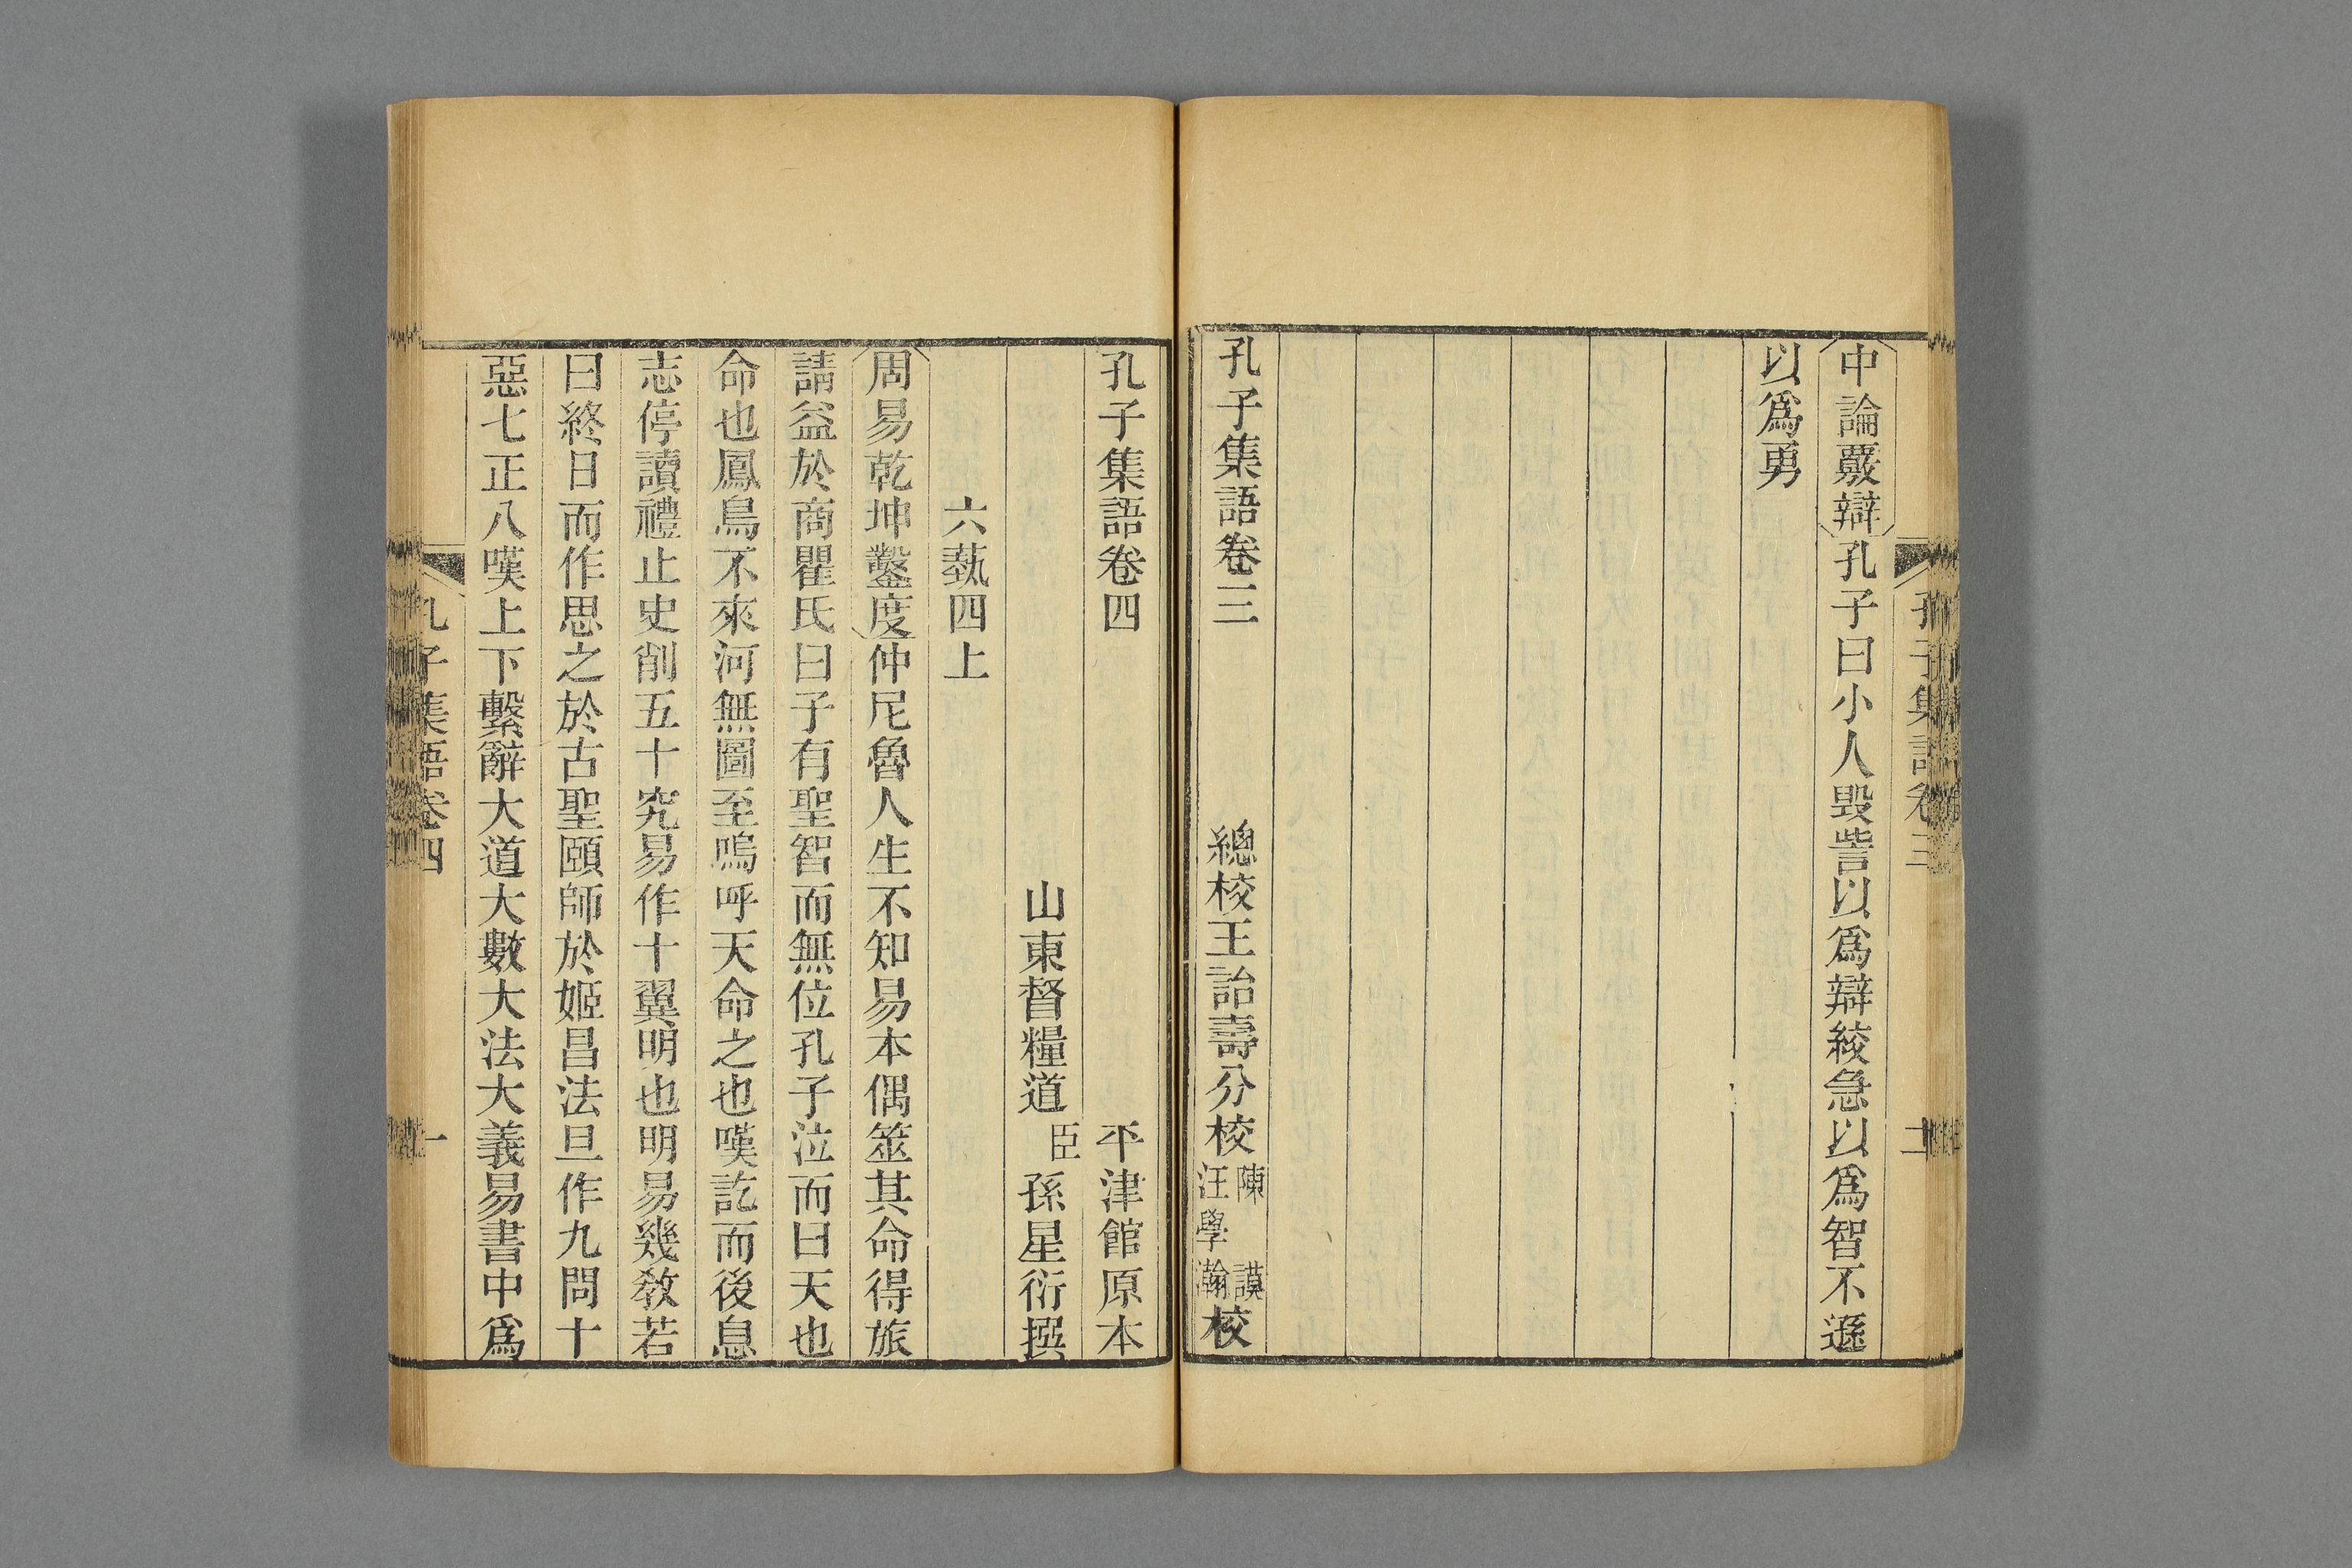 中論覈辯孔子曰小人毀訾以爲辯絞急以爲智不遜
以爲勇
孔子集語卷三 總校王詒壽分校陳謨汪學瀚校
孔子集語卷四 平津館原本
山東督糧道臣孫星衍撰
六藝四上
周易乾坤鑿度仲尼魯人生不知易本偶筮其命得旅
請益於商瞿氏曰子有聖智而無位孔子泣而曰天也
命也鳳鳥不來河無圖至嗚呼天命之也嘆訖而後息
志停讀禮止史削五十究易作十翼明也明易幾教若
曰終日而作思之於古聖頤師於姬昌法旦作九問十
惡七正八嘆上下繫辭大道大數大法大義易書中爲
孔子集語卷四 一